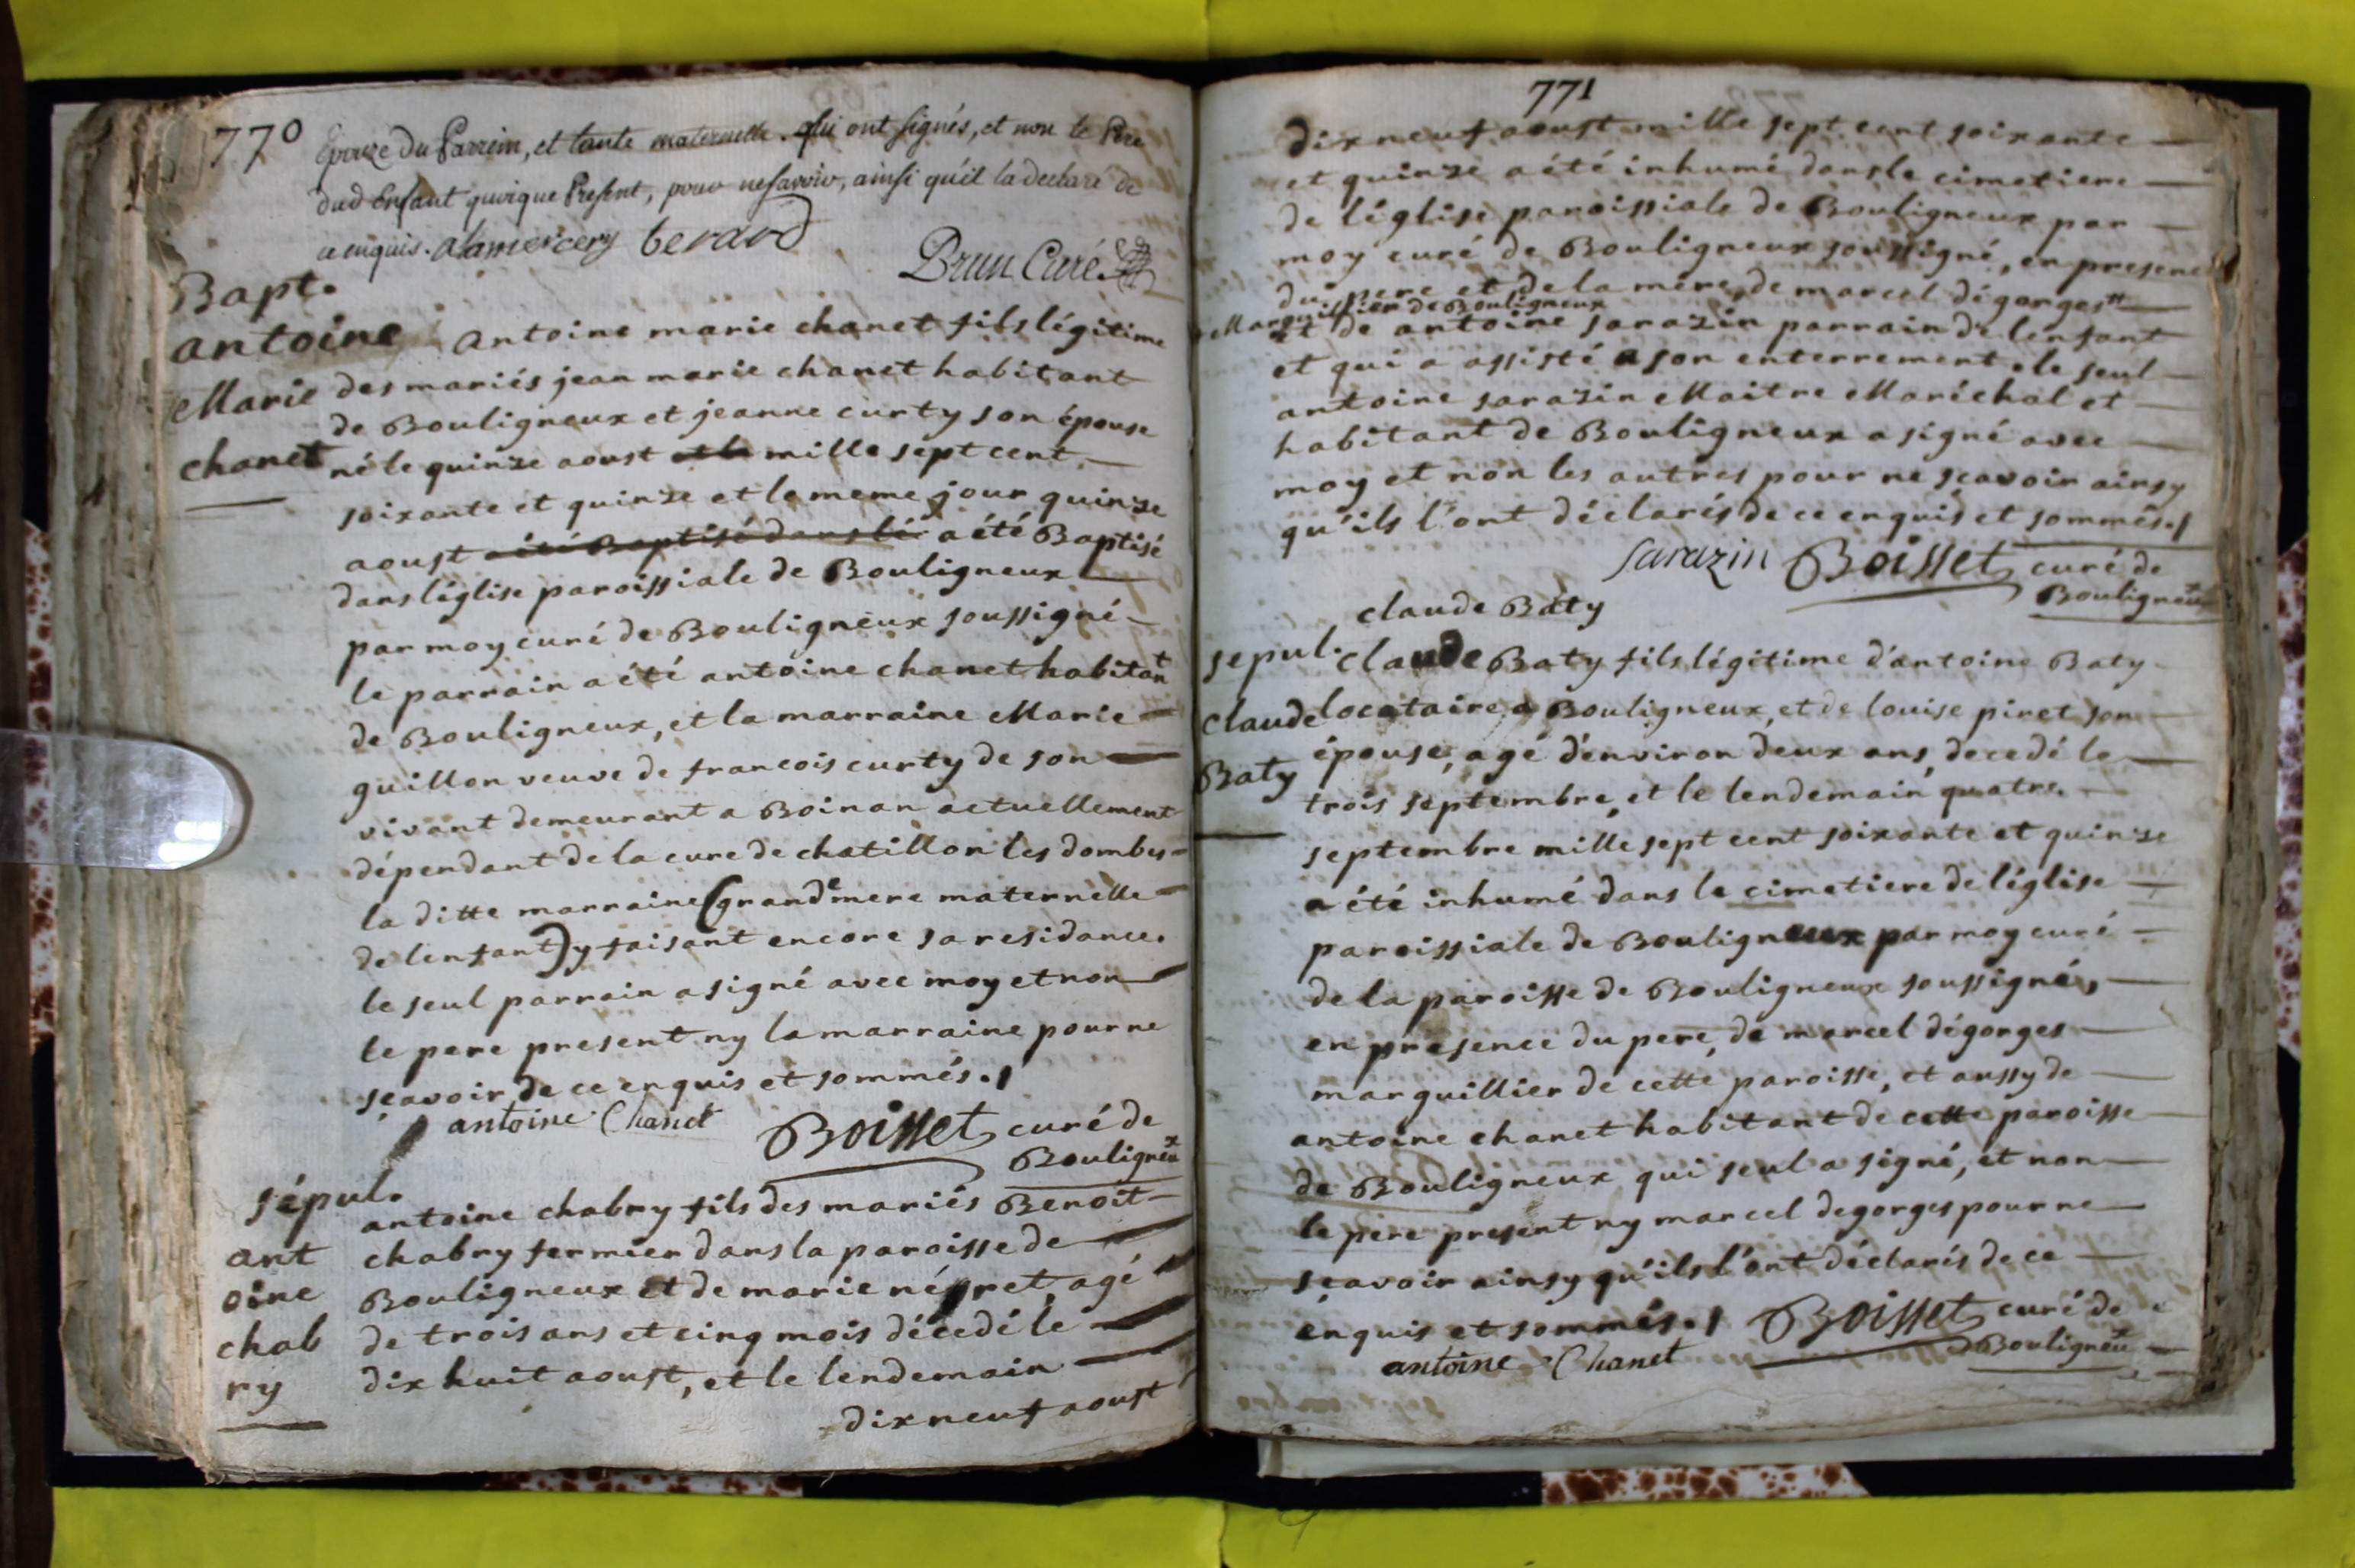 770
Epouze du Parrein, et tante maternelle. qui ont signés, et non le Pere
dud Enfant quoique Présent, pour ne savoir, ainsi qu'il la declaré de
ce enquis. alamercery berard
Brun Curé
Bapt.
antoine
Marie
chanet
Antoine marie chanet fils légitime
des mariés jean marie chanet habitant
de Bouligneux et jeanne curty son épouse
né le quinze aoust et le mille sept cent
soixante et quinze et le meme jour quinze
aoust a été Baptisé dans lé a été Baptisé
dans léglise paroissiale de Bouligneux
par moy curé de Bouligneux soussigné
le parrain a été antoine chanet habitant
de Bouligneux, et la marraine Marie
guillon veuve de francois curty de son
vivant demeurant a Boinan actuellement
dépendant de la cure de chatillon les dombes
la ditte marraine (grande mere maternelle
de lenfant) y faisant encore sa residance.
le seul parrain a signé avec moy et non
le pere present ny la marraine pour ne
sçavoir de ce enquis et sommés.
antoine Chanet Boisset curé de
Bouligneux
sépul.
ant
oine
chab
ry
antoine chabry fils des mariés Benoit
chabry fermier dans la paroisse de
Bouligneux et de marie négret, agé
de trois ans et cinq mois décedé le
dix huit aoust, et le lendemain
dix neuf aoust
771
dix neuf aoust mille sept cent soixante
et quinze a été inhumé dans le cimetiere
de léglise paroissiale de Bouligneux par
moy curé de Bouligneux soussigné, en presence
du pere et de la mere, de marcel dégorges #
# Marguillier de Bouligneux
et de antoine sarazin parrain de lenfant
et qui a assisté a son enterrement. le seul
antoine sarazin Maitre Maréchal et
habitant de Bouligneux a signé avec
moy et non les autres pour ne sçavoir ainsy
qu'ils l'ont déclarés de ce enquis et sommés.
sarazin Boisset curé de
Bouligneux
claude Baty
sepul.
claude
Baty
claude Baty fils légitime d'antoine Baty
locataire a Bouligneux, et de louise piret son
épouse, agé d'environ deux ans, decedé le
trois septembre, et le lendemain quatre
septembre mille sept cent soixante et quinze
a été inhumé dans le cimetiere de léglise
paroissiale de Bouligneux par moy curé
de la paroisse de Bouligneux soussigné,
en presence du pere, de marcel dégorges
marguillier de cette paroisse, et aussy de
antoine chanet habitant de cette paroisse
de Bouligneux qui seul a signé, et non
le pere present ny marcel degorges pour ne
sçavoir ainsy qu'ils l'ont déclarés de ce
enquis et sommés. Boisset curé de
antoine Chanet Bouligneux